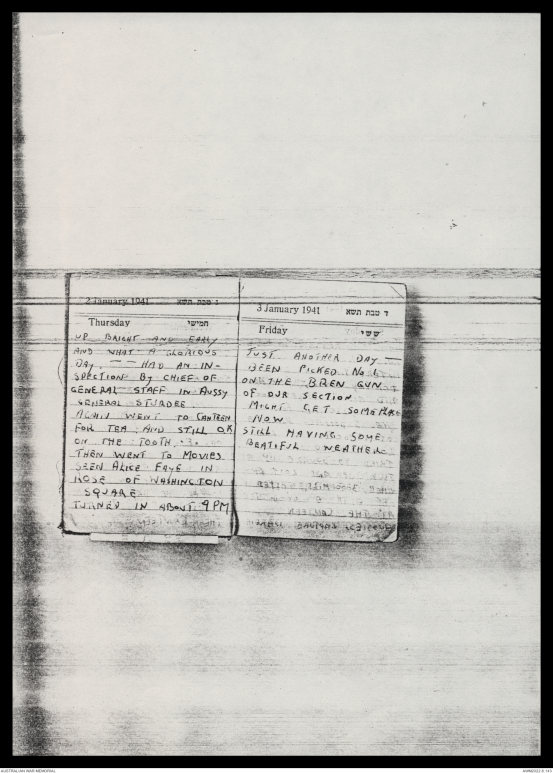 2 January 1941 ג טבת תשא
Thursday חמישי
UP BRIGHT AND EARLY
AND WHAT A GLORIOUS
DAY. — — HAD AN IN-
SPECTION BY CHIEF OF
GENERAL STAFF IN AUSSY
GENERAL STURDEE.
AGAIN WENT TO CANTEEN
FOR TEA AND STILL OK
ON THE TOOTH.
THEN WENT TO MOVIES
SEEN ALICE FAYE IN
ROSE OF WASHINGTON
SQUARE
TURNED IN ABOUT 9 PM
3 January 1941 ד טבת תשא
Friday ששי
JUST ANOTHER DAY —
BEEN PICKED No 1
ON THE BREN GUN
OF OUR SECTION
MIGHT GET SOMEPLACE
NOW
STILL HAVING SOME
BEATIFUL WEATHER
AUSTRALIAN WAR MEMORIAL